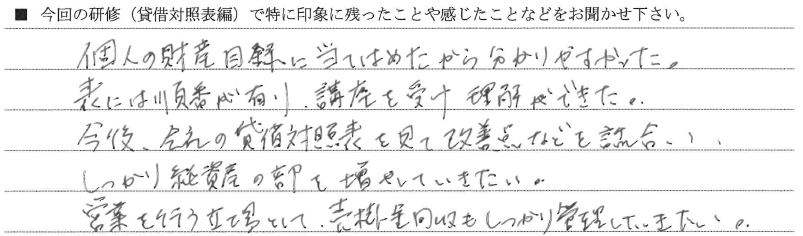 ■ 今回の研修（貸借対照表編）で特に印象に残ったことや感じたことなどをお聞かせ下さい。
個人の財産目録に当てはめたから分かりやすかった。
表には順番が有り、講座を受け理解ができた。
今後、会社の貸借対照表を見て改善点などを話合い、
しっかり総資産の部を増やしていきたい。
営業を行う立場として、売掛金回収もしっかり管理していきたい。